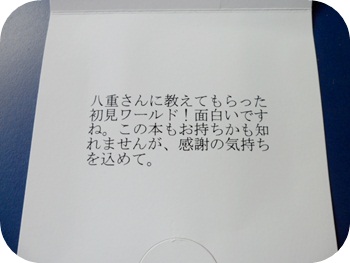 八重さんに教えてもらった
初見ワールド！面白いです
ね。この本もお持ちかも知
れませんが、感謝の気持ち
を込めて。